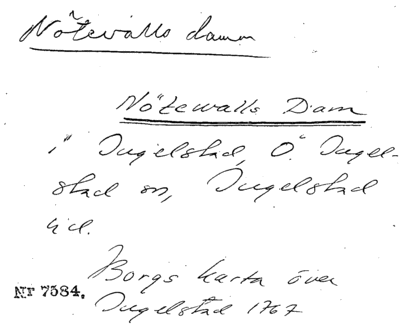 Nötevalls damm
Nötewalls Dam
i Ingelstad, Ö. Ingel-
stad sn, Ingelstad
hd.
Borgs karta över
Nr 7584.
Ingelstad 1767